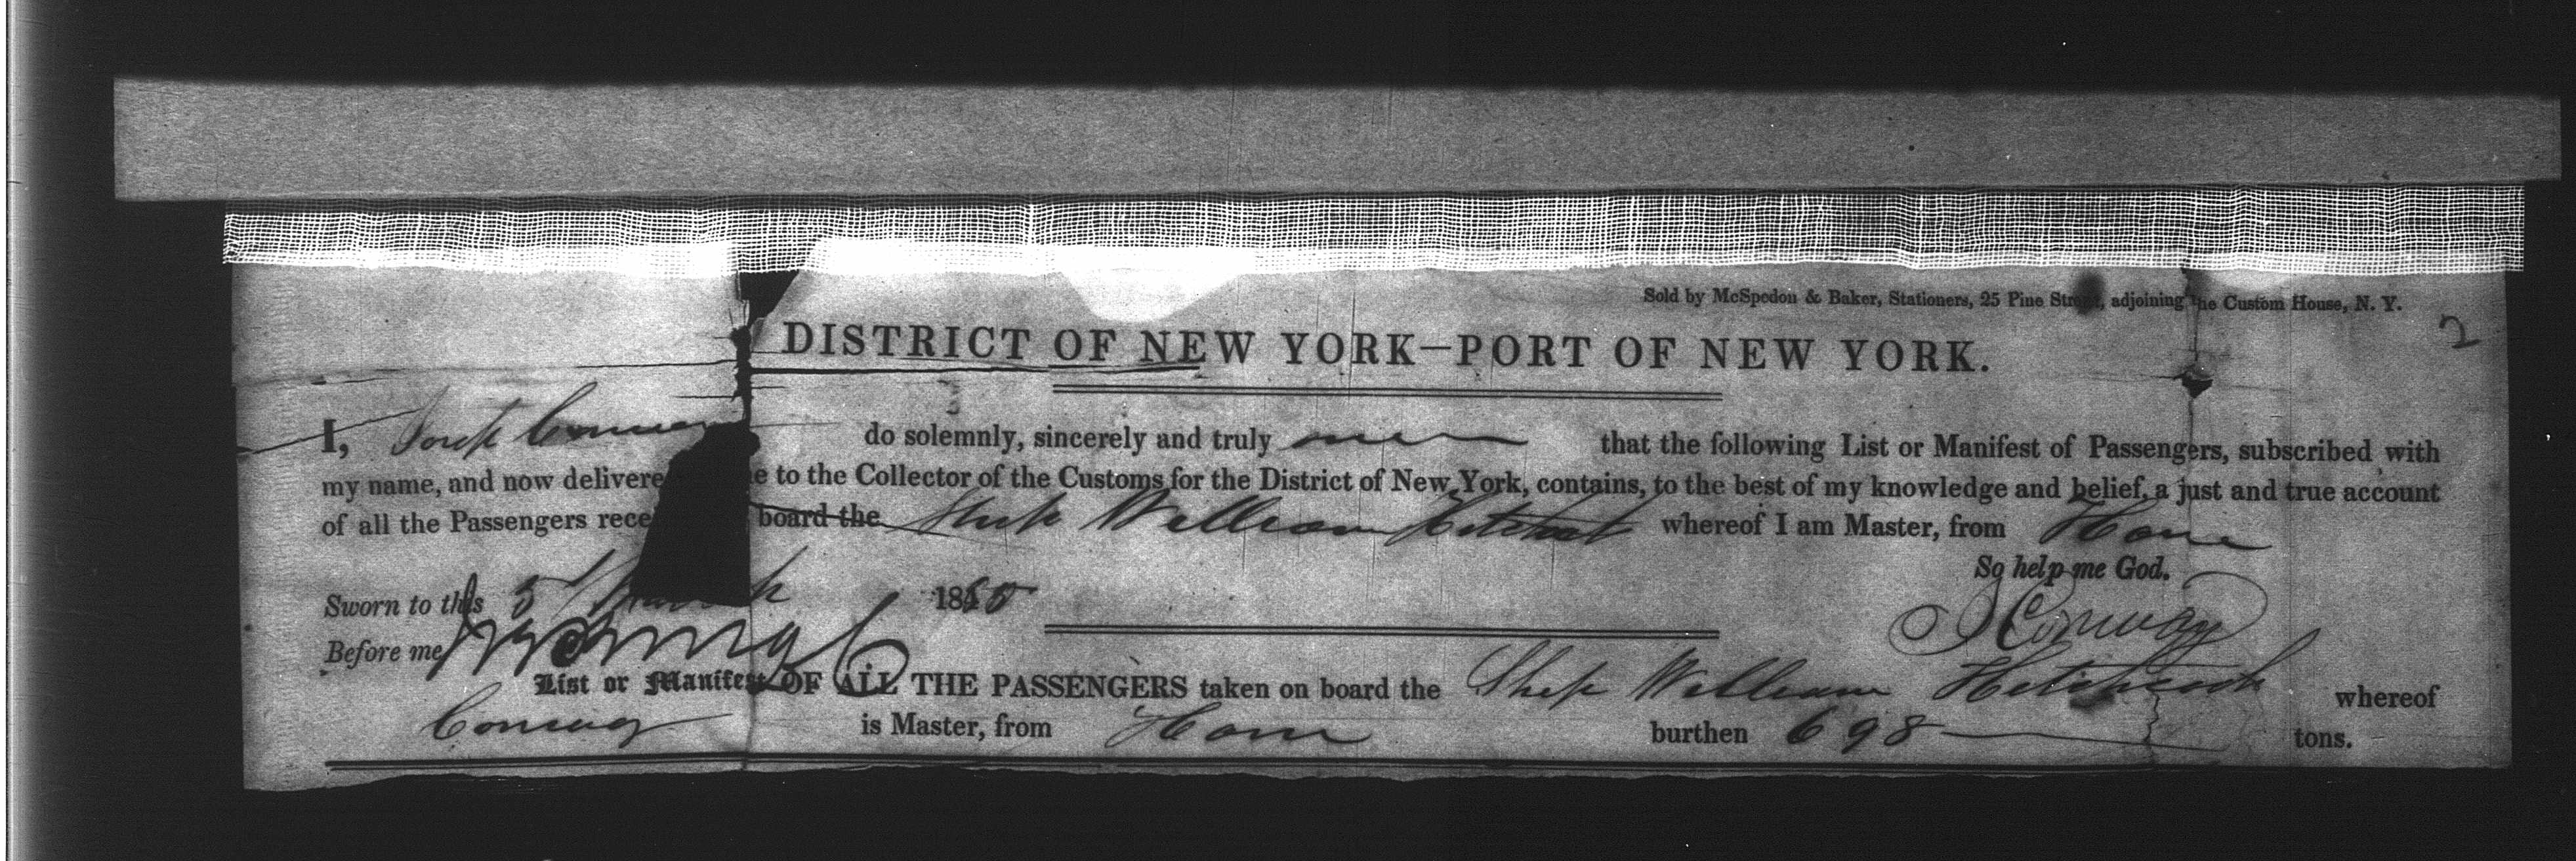 Sold by McSpedon & Baker, Stationers, 25 Pine Street, adjoining the Custom House, N. Y.
2
DISTRICT OF NEW YORK—PORT OF NEW YORK.
I, Conway do solemnly, sincerely and truly that the following List or Manifest of Passengers, subscribed with
my name, and now delivere e to the Collector of the Customs for the District of New York, contains, to the best of my knowledge and belief, a just and true account
of all the Passengers rece board the Ship William Hitchcock whereof I am Master, from Havre
So help me God.
Sworn to this 5 March 1850
J Conway
Before me
List or Manifest OF ALL THE PASSENGERS taken on board the Ship William Hitchcock whereof
Conway is Master, from Havre burthen 698 tons.